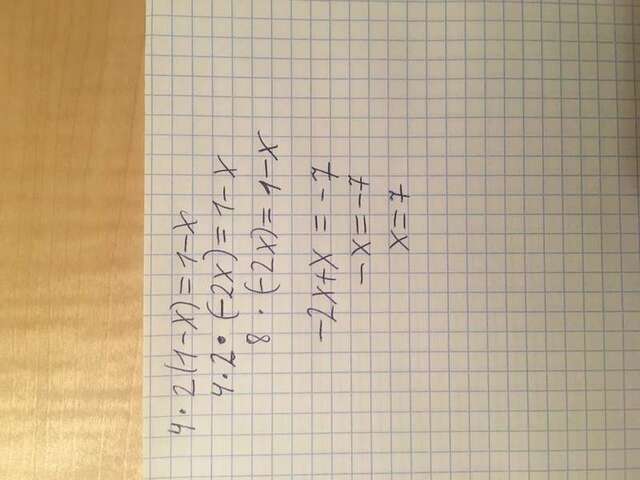 4·2(1-x)=1-x
4·2·(-2x)=1-x
8·(-2x)=1-x
-2x+x=-7
-x=-7
x=7